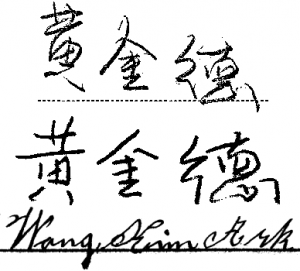 黃金德
黃金德
Wong Kim Ark